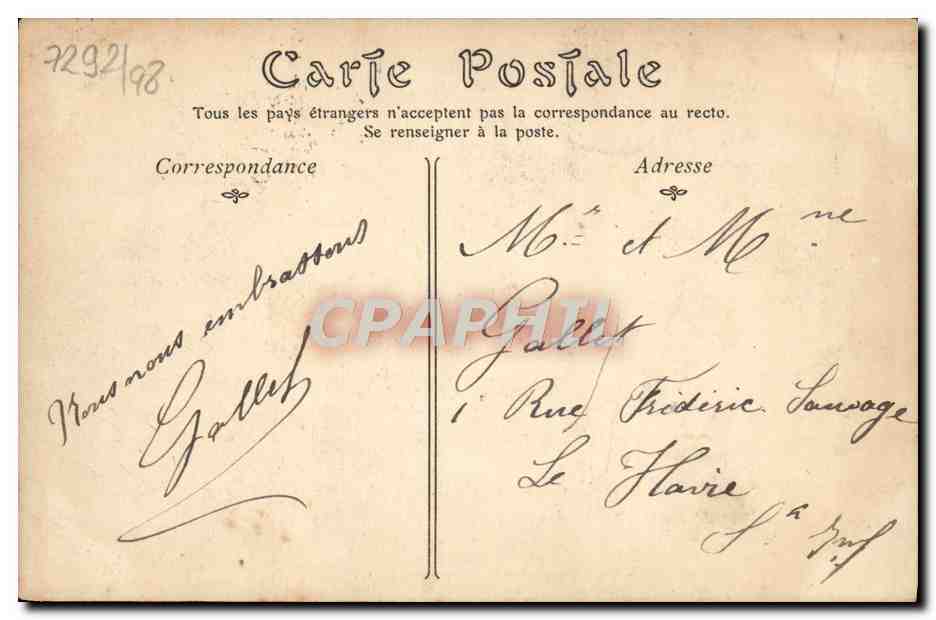 7292/98
Carte Postale
Tous les pays étrangers n'acceptent pas la correspondance au recto.
Se renseigner à la poste.
Correspondance
Nous nous embrassons
Gallet
Adresse
Mr et Mme
Gallet
1 Rue Frédéric Sauvage
Le Havre
Sa Inf
CPAPHIL